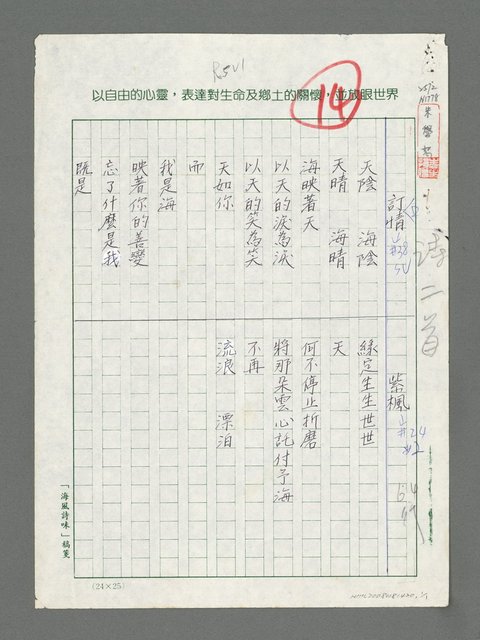 R5V1
以自由的心靈，表達對生命及鄉土的關懷，並放眼世界
14
詩二首
訂情
紫楓
天陰　海陰
天晴　海晴
海映著天
以天的淚為淚
以天的笑為笑
天如你
而
我是海
映著你的善變
忘了什麼是我
既是
緣定生生世世
天
何不停止折磨
將那朵雲心託付予海
不再
流浪　漂泊
「海風詩味」稿箋
(24×25)